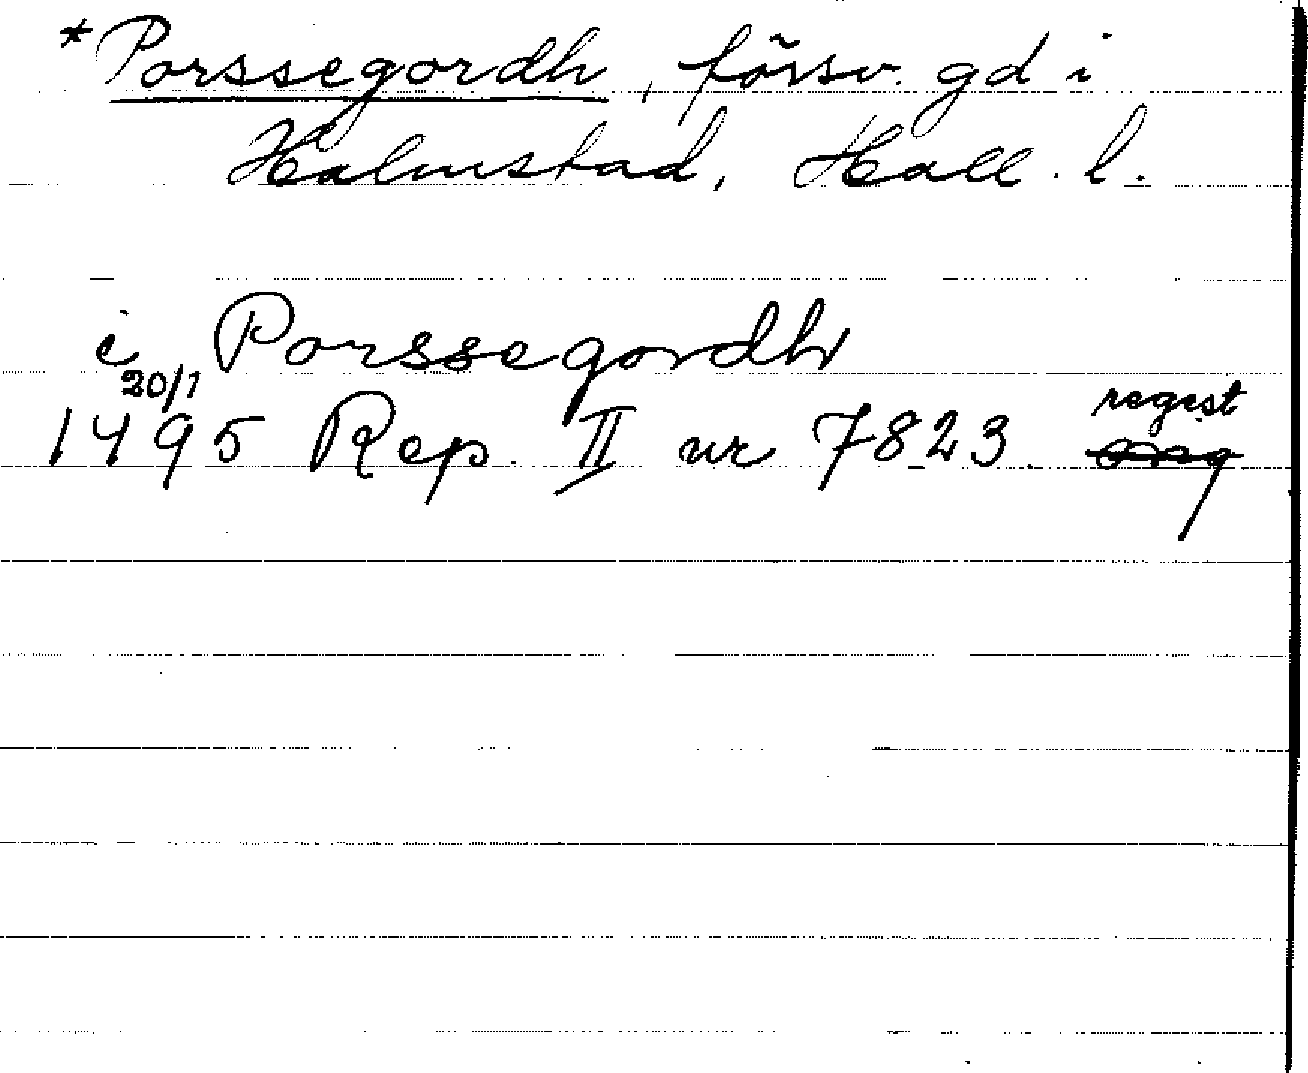 *Porssegordh, försv. gd i
Halmstad, Hall. l.
i Porssegordh
20/1
1495 Rep. II nr 7823. regest